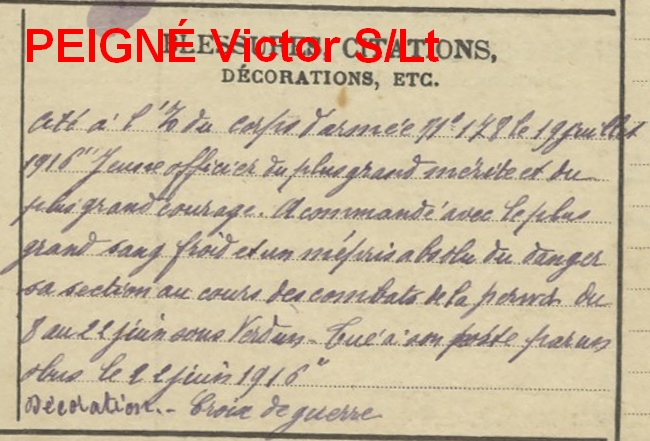 PEIGNÉ Victor S/Lt
BLESSURES, CITATIONS,
DÉCORATIONS, ETC.
Cité à l'O du corps d'armée N° 178 le 19 juillet
1916 "Jeune officier du plus grand mérite et du
plus grand courage. A commandé avec le plus
grand sang froid et un mépris absolu du danger
sa section au cours des combats de la période du
8 au 22 juin sous Verdun - Tué à son poste par un
obus le 22 juin 1916"
Décoration. - Croix de guerre